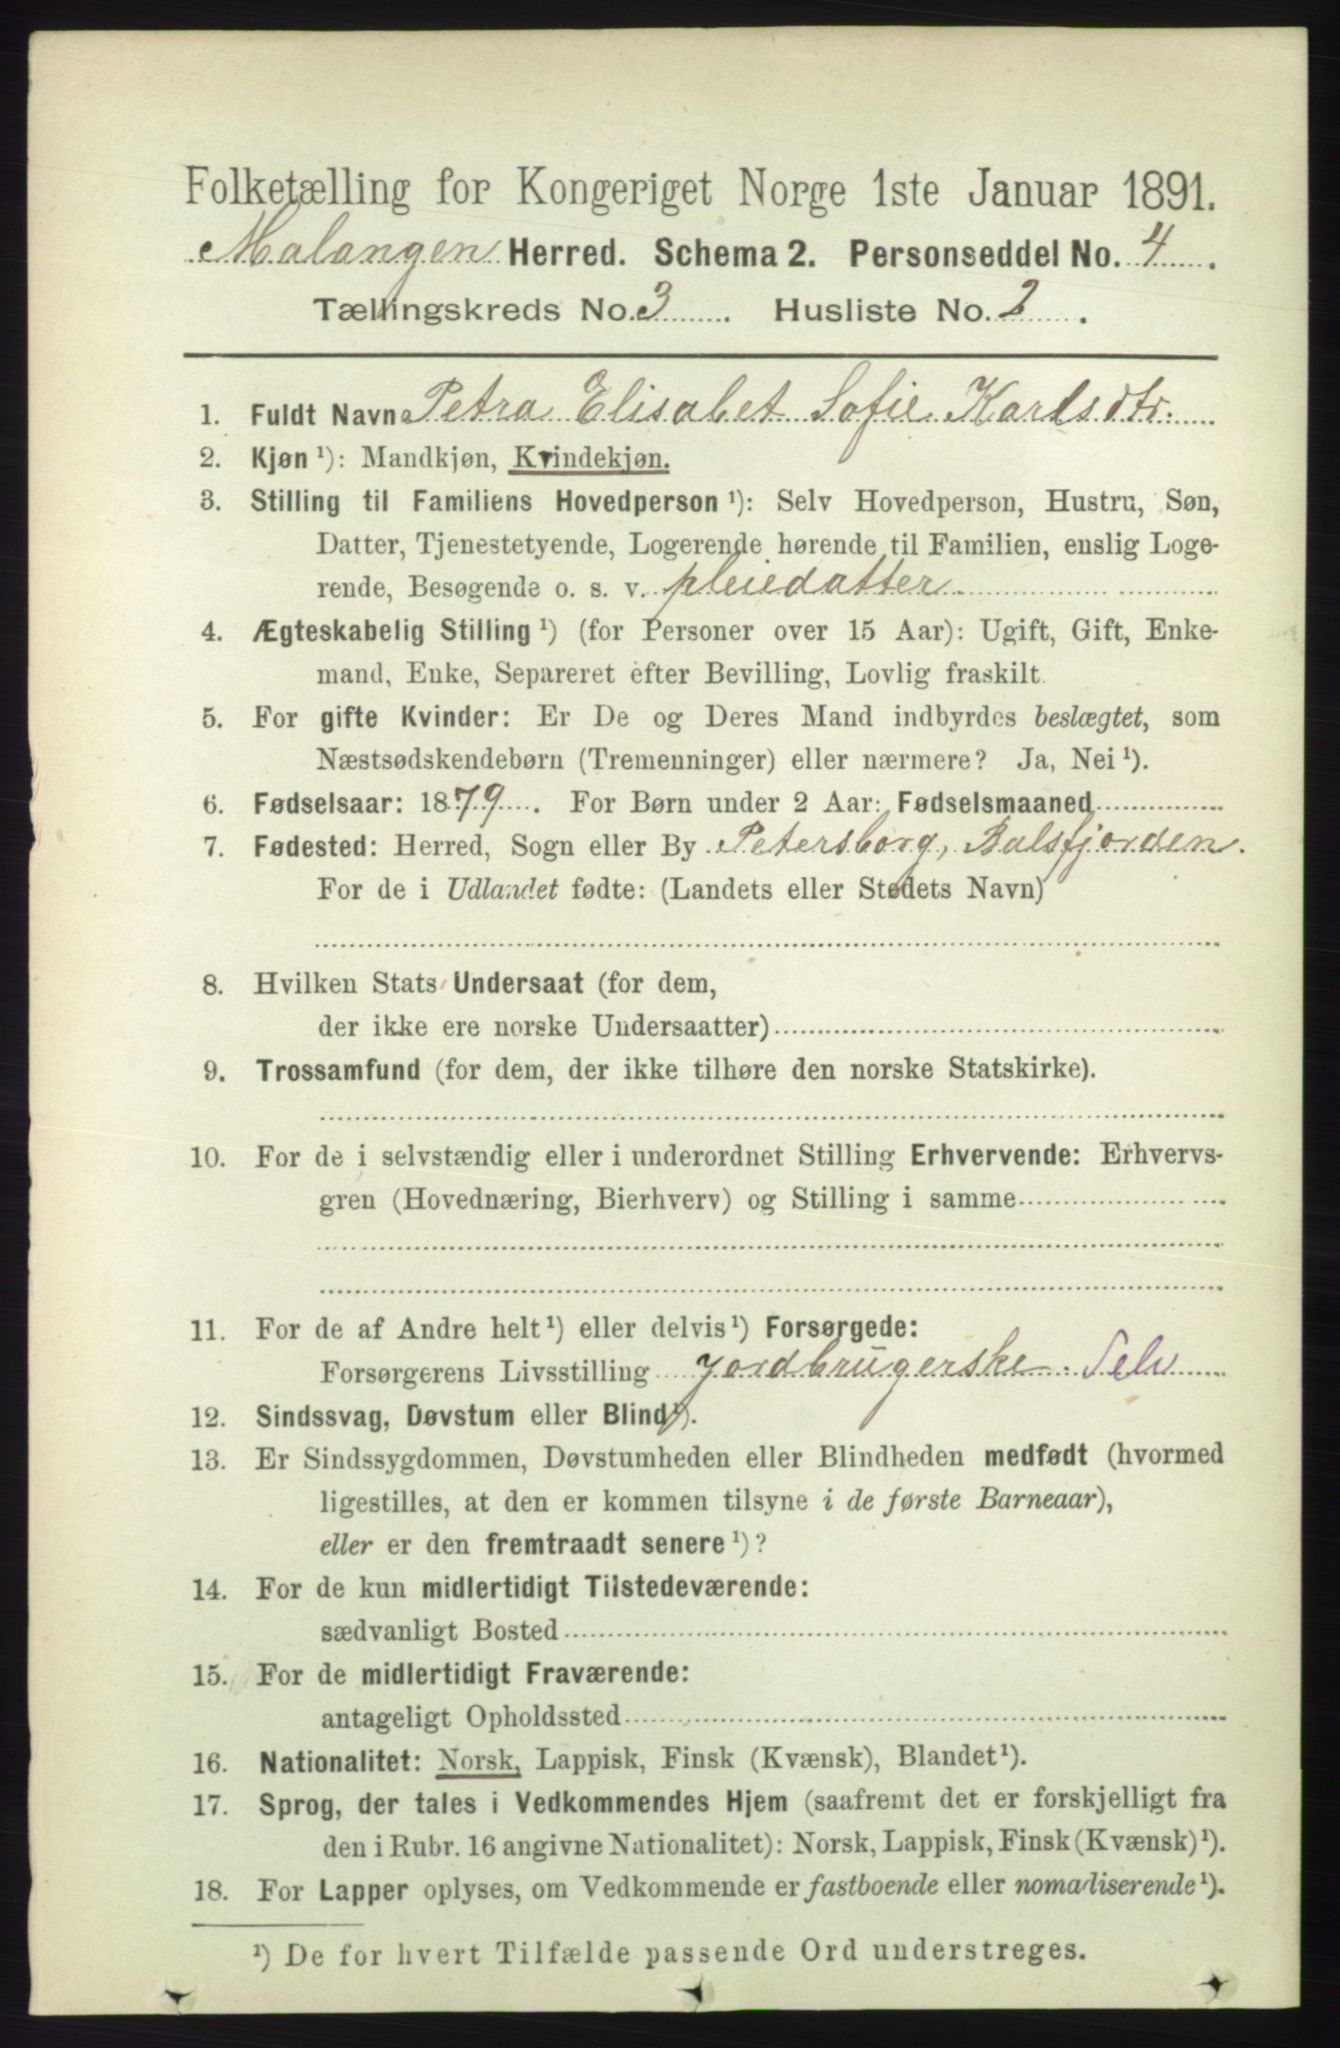 Folketælling for Kongeriget Norge 1ste Januar 1891.
Malangen Herred. Schema 2. Personseddel No. 4.
Tællingskreds No. 3. Husliste No. 2.
1. Fuldt Navn Petra Elisabet Sofie Karlsdtr.
2. Kjøn ¹): Mandkjøn, Kvindekjøn.
3. Stilling til Familiens Hovedperson ¹): Selv Hovedperson, Hustru, Søn,
Datter, Tjenestetyende, Logerende hørende til Familien, enslig Loge-
rende, Besøgende o. s. v. pleiedatter
4. Ægteskabelig Stilling ¹) (for Personer over 15 Aar): Ugift, Gift, Enke-
mand, Enke, Separeret efter Bevilling, Lovlig fraskilt.
5. For gifte Kvinder: Er De og Deres Mand indbyrdes beslægtet, som
Næstsødskendebørn (Tremenninger) eller nærmere? Ja, Nei ¹).
6. Fødselsaar: 1879. For Børn under 2 Aar: Fødselsmaaned
7. Fødested: Herred, Sogn eller By Petersborg, Balsfjorden.
For de i Udlandet fødte: (Landets eller Stedets Navn)
8. Hvilken Stats Undersaat (for dem,
der ikke ere norske Undersaatter)
9. Trossamfund (for dem, der ikke tilhøre den norske Statskirke).
10. For de i selvstændig eller i underordnet Stilling Erhvervende: Erhvervs-
gren (Hovednæring, Bierhverv) og Stilling i samme
11. For de af Andre helt ¹) eller delvis ¹) Forsørgede:
Forsørgerens Livsstilling jordbrugerske Selv
12. Sindssvag, Døvstum eller Blind ¹).
13. Er Sindssygdommen, Døvstumheden eller Blindheden medfødt (hvormed
ligestilles, at den er kommen tilsyne i de første Barneaar),
eller er den fremtraadt senere ¹)?
14. For de kun midlertidigt Tilstedeværende:
sædvanligt Bosted
15. For de midlertidigt Fraværende:
antageligt Opholdssted
16. Nationalitet: Norsk, Lappisk, Finsk (Kvænsk), Blandet ¹).
17. Sprog, der tales i Vedkommendes Hjem (saafremt det er forskjelligt fra
den i Rubr. 16 angivne Nationalitet): Norsk, Lappisk, Finsk (Kvænsk) ¹).
18. For Lapper oplyses, om Vedkommende er fastboende eller nomadiserende ¹).
¹) De for hvert Tilfælde passende Ord understreges.